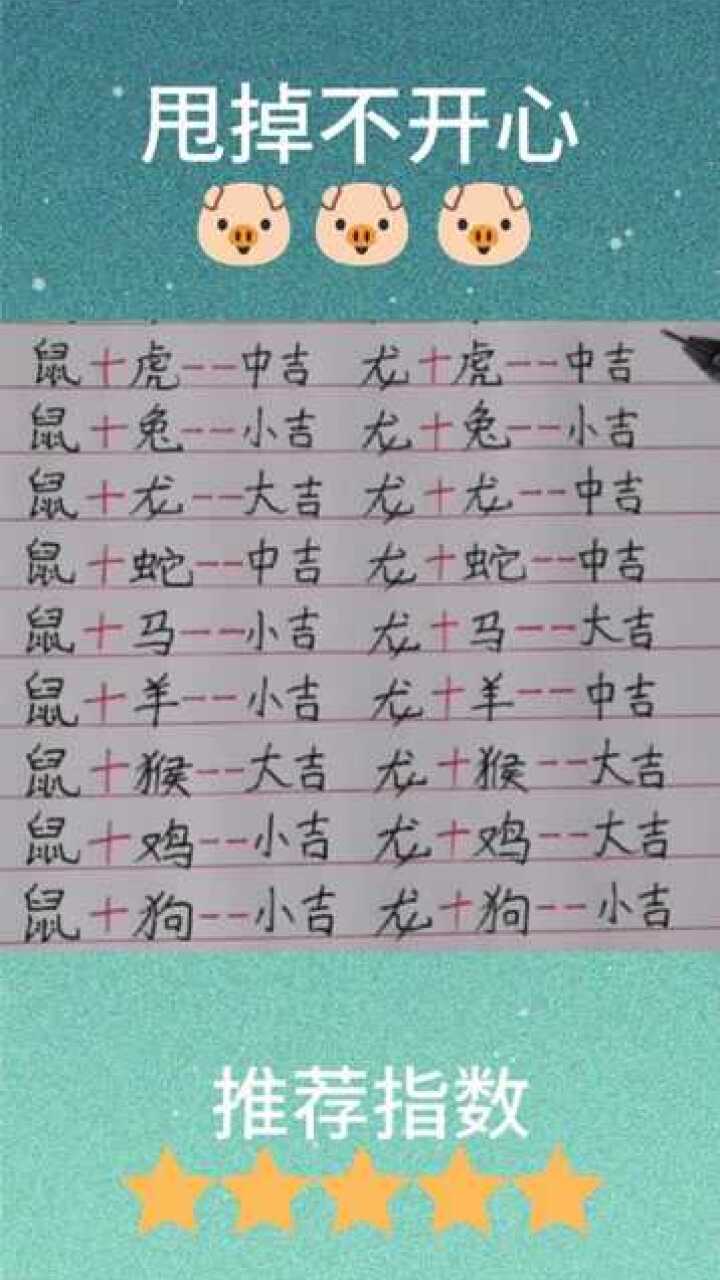 甩掉不开心
鼠+虎--中吉 龙+虎--中吉
鼠+兔--小吉 龙+兔--小吉
鼠+龙--大吉 龙+龙--中吉
鼠+蛇--中吉 龙+蛇--中吉
鼠+马--小吉 龙+马--大吉
鼠+羊--小吉 龙+羊--中吉
鼠+猴--大吉 龙+猴--大吉
鼠+鸡--小吉 龙+鸡--大吉
鼠+狗--小吉 龙+狗--小吉
推荐指数